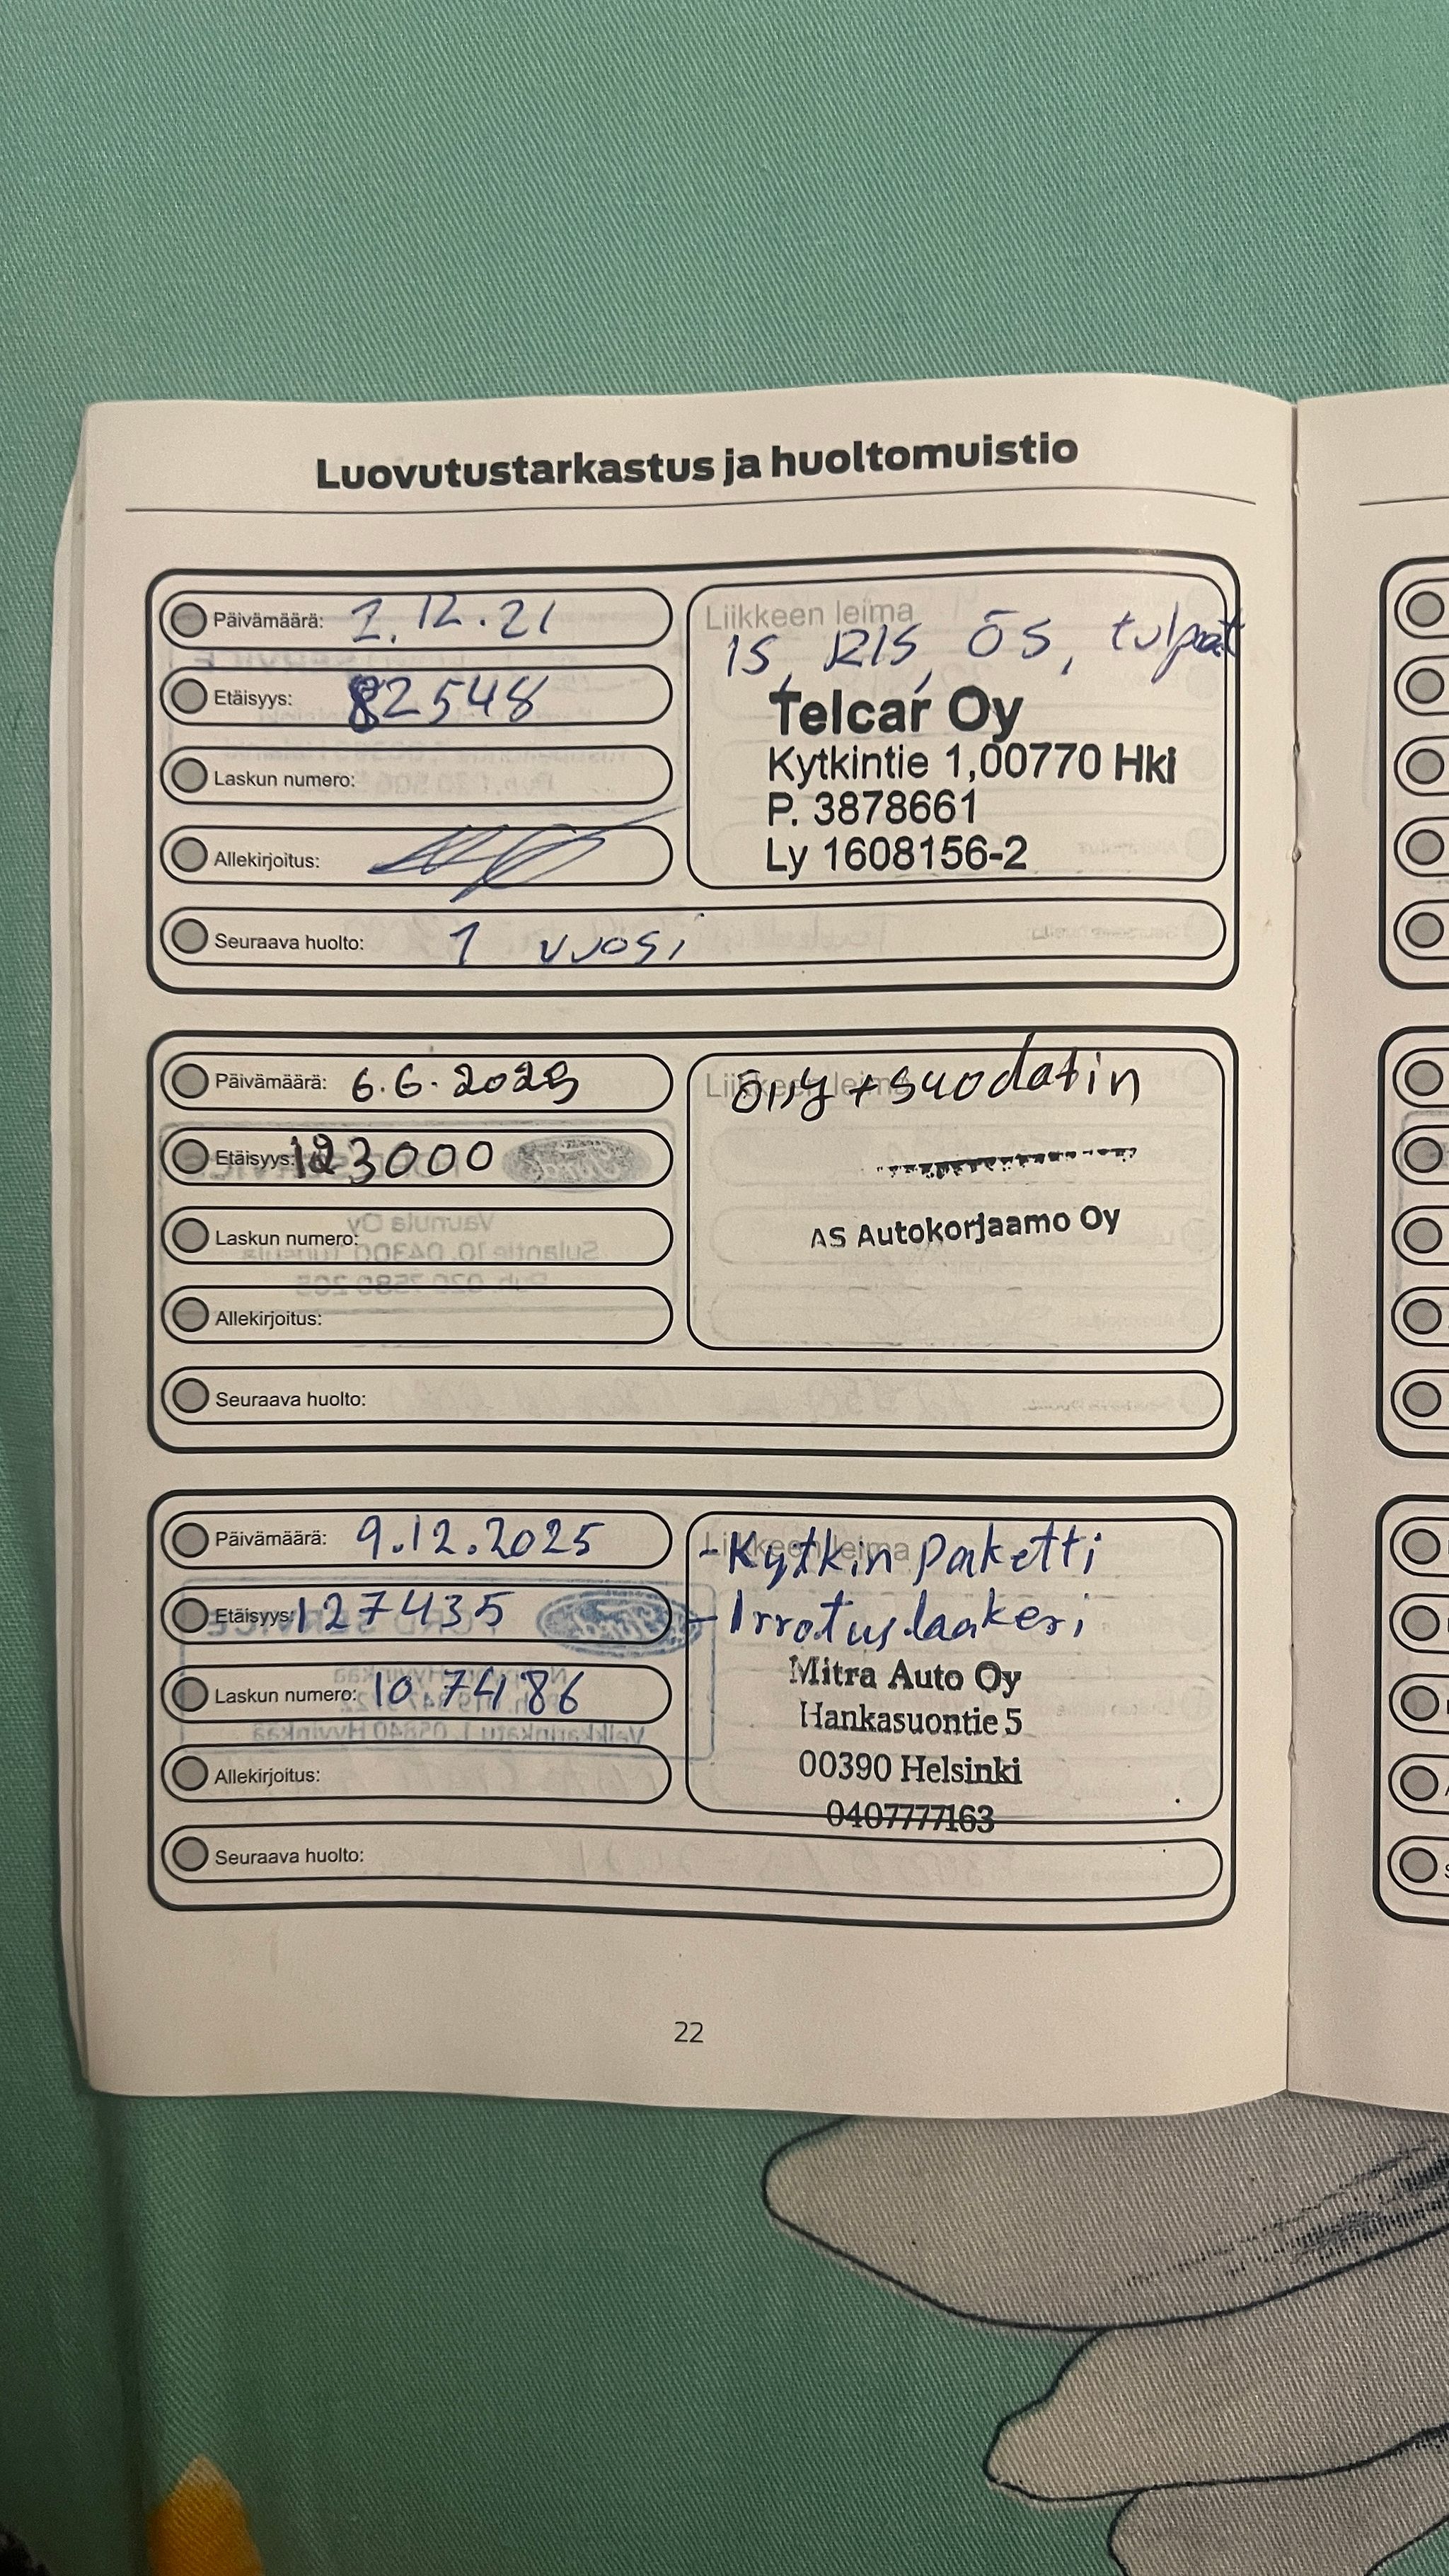 Luovutustarkastus ja huoltomuistio
Päivämäärä: 2.12.21
Liikkeen leima
Etäisyys: 82548
IS, RIS, ÖS, tulpat
Laskun numero:
Telcar Oy
Kytkintie 1,00770 Hki
P. 3878661
Ly 1608156-2
Allekirjoitus:
Seuraava huolto: 1 vuosi
Päivämäärä: 6.6.2025
Liikkeen leima
öljy + suodatin
Etäisyys: 123000
Laskun numero:
AS Autokorjaamo Oy
Allekirjoitus:
Seuraava huolto:
Päivämäärä: 9.12.2025
Liikkeen leima
- Kytkin paketti
Etäisyys: 127435
- Irrotuslaakeri
Laskun numero: 1074186
Mitra Auto Oy
Hankasuontie 5
00390 Helsinki
0407777163
Allekirjoitus:
Seuraava huolto:
22